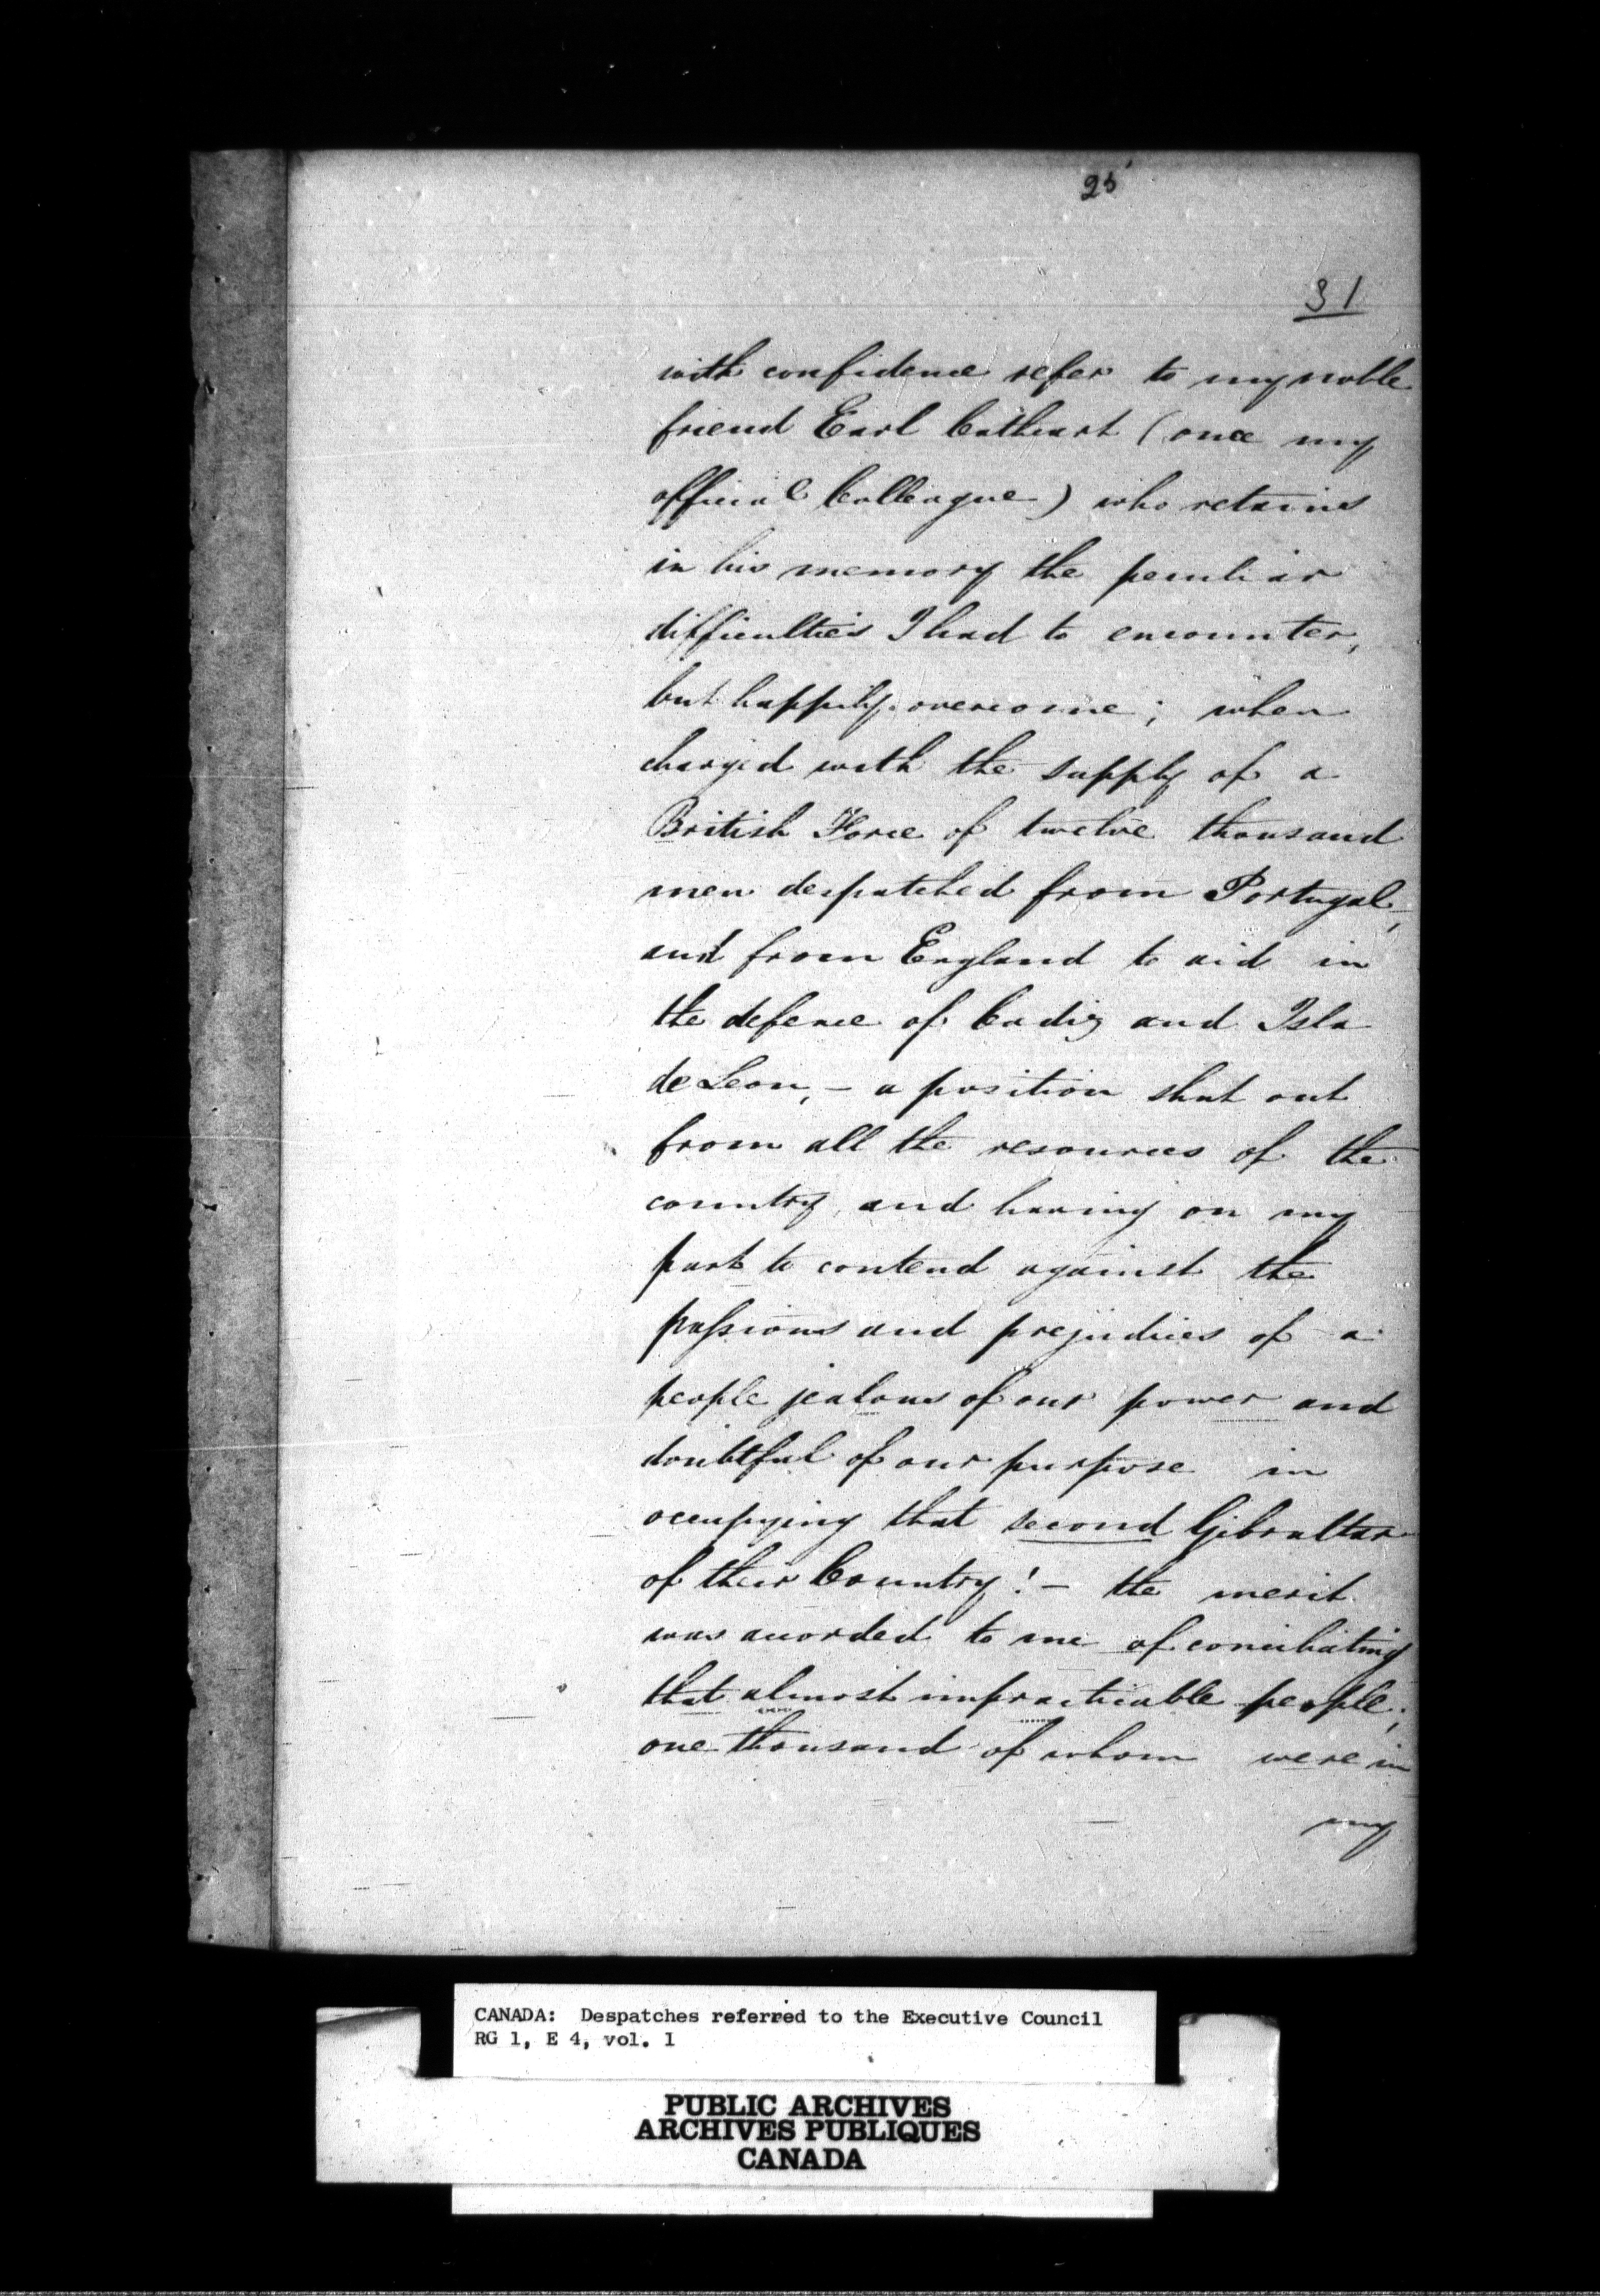 25
31
with confidence refer to my noble
friend Earl Cathcart (once my
official Colleague) who retains
in his memory the peculiar
difficulties I had to encounter,
but happily overcome; when
charged with the supply of a
British Force of twelve thousand
men despatched from Portugal,
and from England to aid in
the defence of Cadiz and Isla
de Leon, – a position shut out
from all the resources of the
country, and having on my
part to contend against the
passions and prejudices of a
people jealous of our power and
doubtful of our purpose in
occupying that second Gibraltar
of their Country! – the merit
was accorded to me of conciliating
that almost impracticable people;
one thousand of whom were in
my
CANADA: Despatches referred to the Executive Council
RG 1, E 4, vol. 1
PUBLIC ARCHIVES
ARCHIVES PUBLIQUES
CANADA